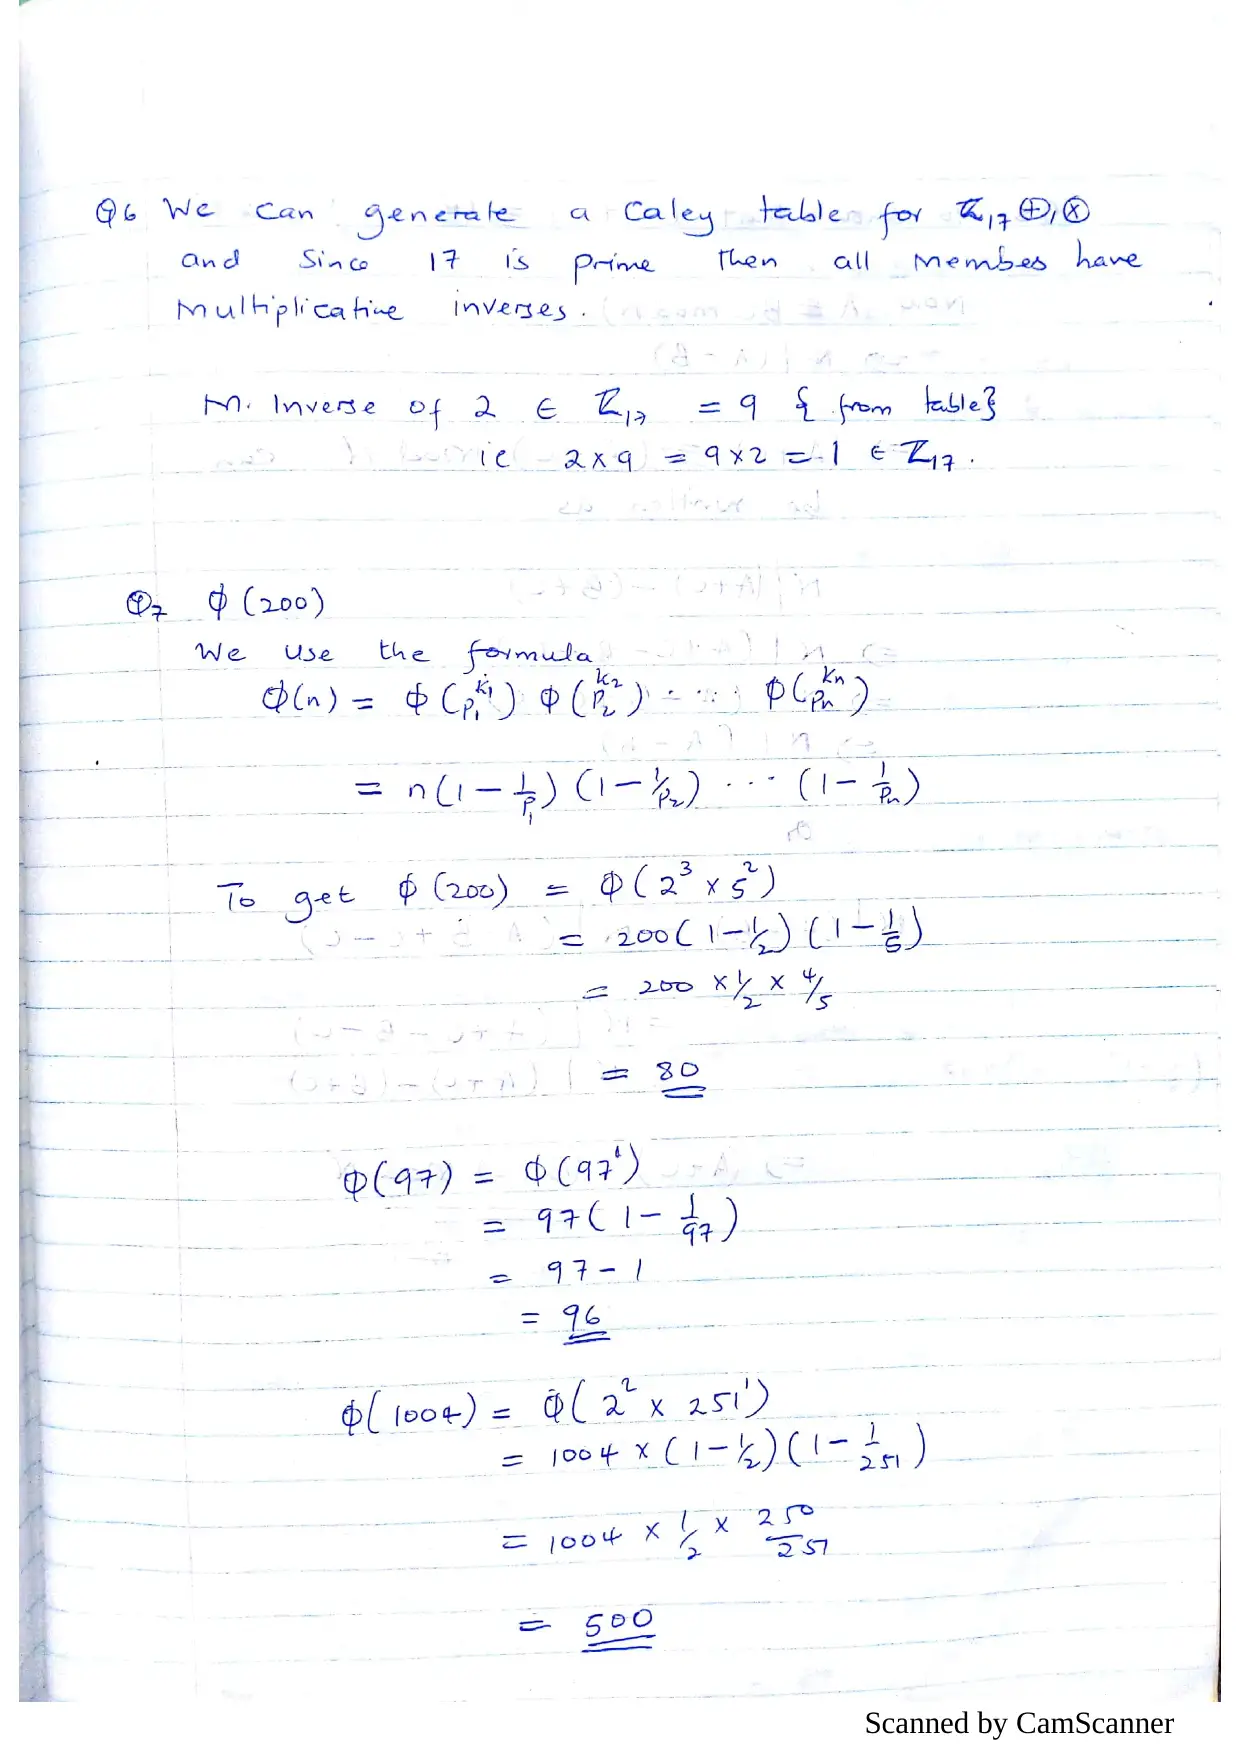 Q6 We can generate a Caley table for ℤ₁₇ ⊕,⊗
and Since 17 is prime then all Membes have
Multiplicative inverses.
M. Inverse of 2 ∈ ℤ₁₇ = 9 { from table}
ie 2×9 = 9×2 = 1 ∈ ℤ₁₇.
Q7 ϕ(200)
We use the formula
ϕ(n) = ϕ(p₁^k₁) ϕ(p₂^k₂) ... ϕ(pₙ^kₙ)
= n(1 - 1/p₁) (1 - 1/p₂) ... (1 - 1/pₙ)
To get ϕ(200) = ϕ(2³ × 5²)
= 200(1-1/2)(1-1/5)
= 200 × 1/2 × 4/5
= 80
ϕ(97) = ϕ(97¹)
= 97(1 - 1/97)
= 97 - 1
= 96
ϕ(1004) = ϕ(2² × 251¹)
= 1004 × (1-1/2)(1-1/251)
= 1004 × 1/2 × 250/251
= 500
Scanned by CamScanner